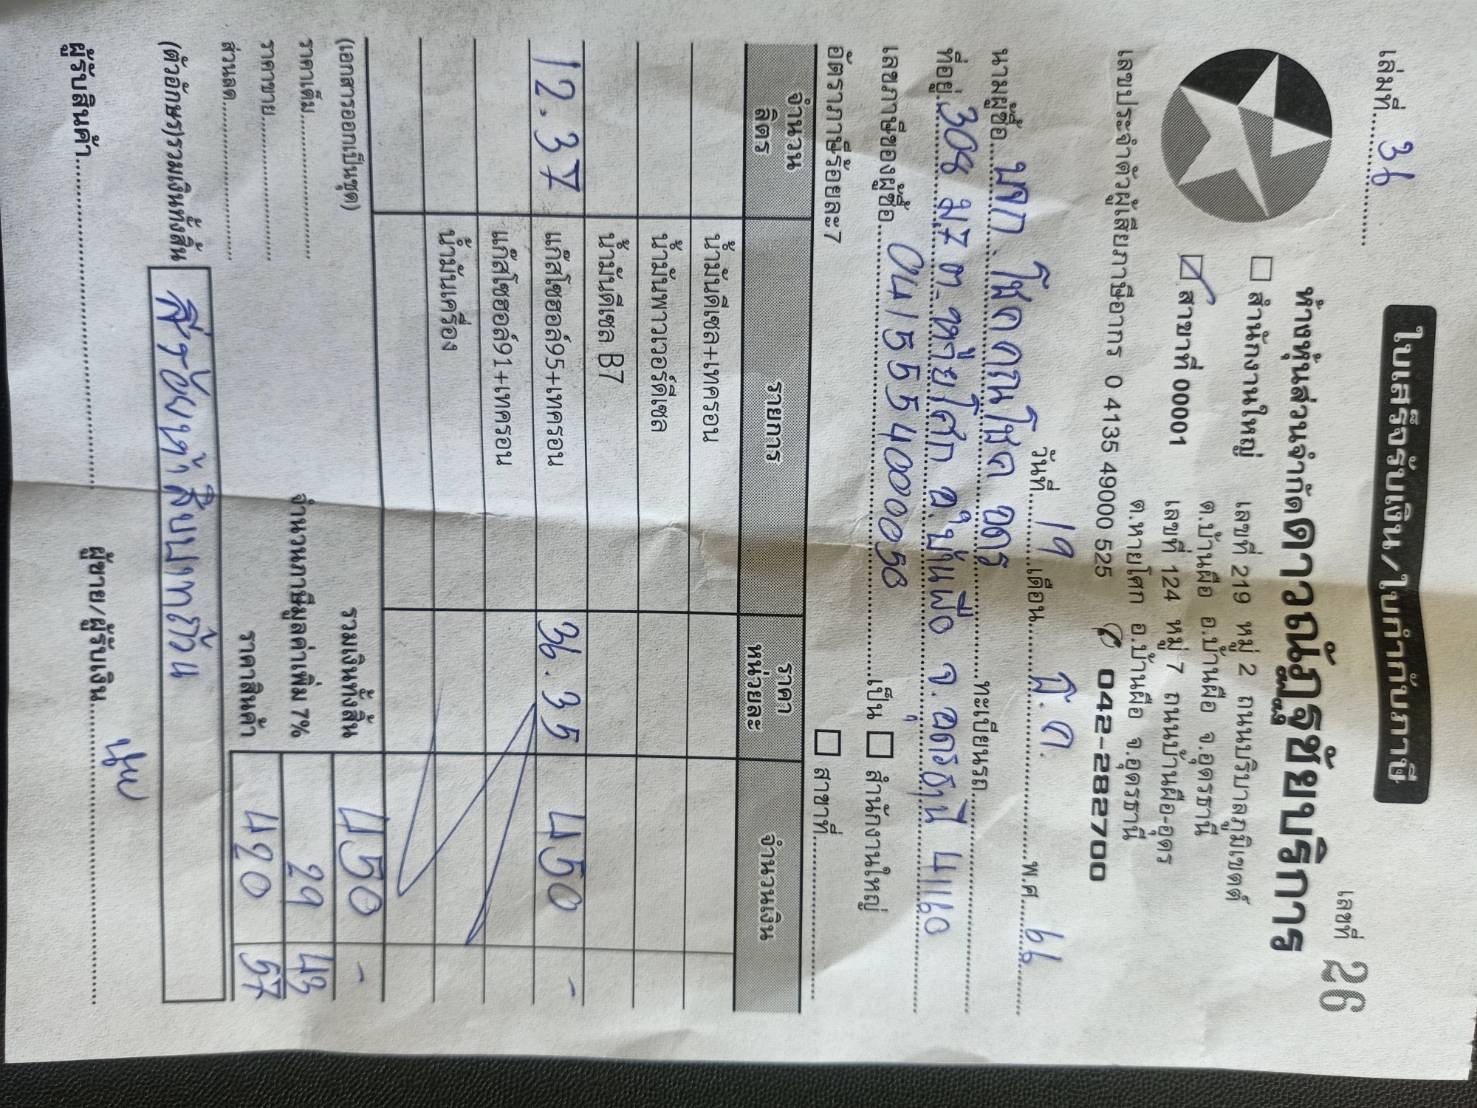 ใบเสร็จรับเงิน/ใบกำกับภาษี
เล่มที่ 36
เลขที่ 26
ห้างหุ้นส่วนจำกัด บริการ
สำนักงานใหญ่ เลขที่ 219 หมู่ 2 ถนนบริบาลภูมิเขตต์
ต.บ้านผือ อ.บ้านผือ จ.อุดรธานี
สาขาที่ 00001 เลขที่ 124 หมู่ 7 ถนนบ้านผือ-อุดร
ต.หายโศก อ.บ้านผือ จ.อุดรธานี
เลขประจำตัวผู้เสียภาษีอากร 0 4135 49000 525 042-282700
วันที่ 19 เดือน มี.ค. พ.ศ. 66
นามผู้ซื้อ บจก. โชคคณโชค อุดร ทะเบียนรถ
ที่อยู่ 308 ม.7 ต.หายโศก อ.บ้านผือ จ.อุดรธานี 41160
เลขภาษีของผู้ซื้อ 0415554000050 เป็น สำนักงานใหญ่
อัตราภาษีร้อยละ7 สาขาที่
จำนวนลิตร รายการ ราคาหน่วยละ จำนวนเงิน
น้ำมันดีเซล+เทครอน
น้ำมันพาวเวอร์ดีเซล
น้ำมันดีเซล B7
12.37 แก๊สโซฮอล์95+เทครอน 36.35 450 -
แก๊สโซฮอล์91+เทครอน
น้ำมันเครื่อง
(เอกสารออกเป็นชุด) รวมเงินทั้งสิ้น 450 -
ราคาเต็ม จำนวนภาษีมูลค่าเพิ่ม 7% 29 43
ราคาขาย ราคาสินค้า 420 57
ส่วนลด
(ตัวอักษร)รวมเงินทั้งสิ้น สี่ร้อยห้าสิบบาทถ้วน
ผู้รับสินค้า ผู้ขาย/ผู้รับเงิน